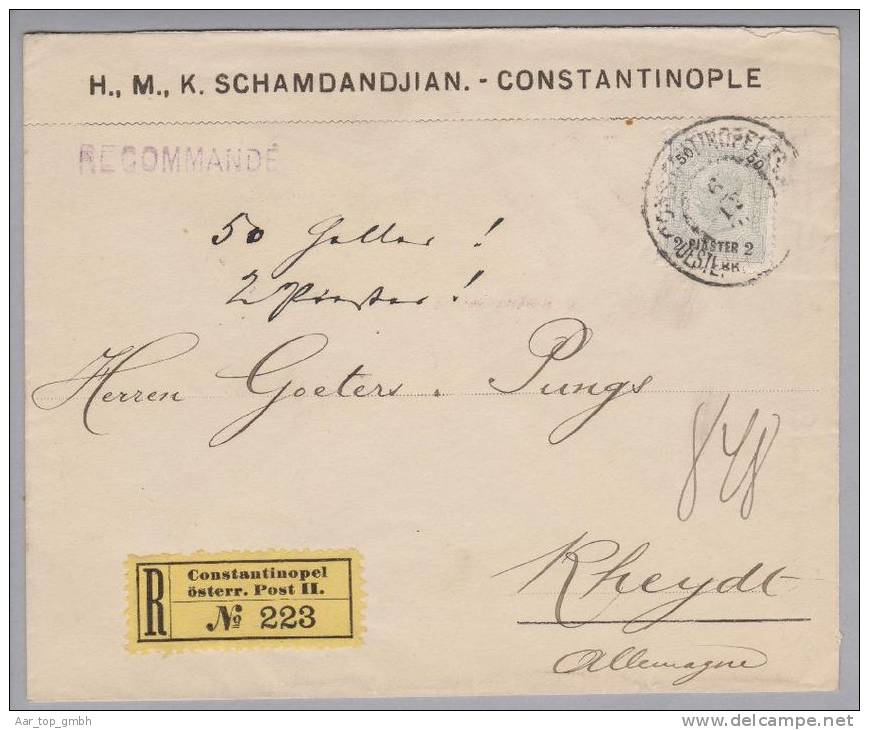 H., M., K. SCHAMDANDJIAN. - CONSTANTINOPLE
RECOMMANDÉ
50 50
2 PIASTER 2
50 Heller !
2 Piaster !
Herren Goeters & Pungs
848
Rheydt
Allemagne
R
Constantinopel
österr. Post II.
№ 223
Aar_top_gmbh
www.delcampe.net